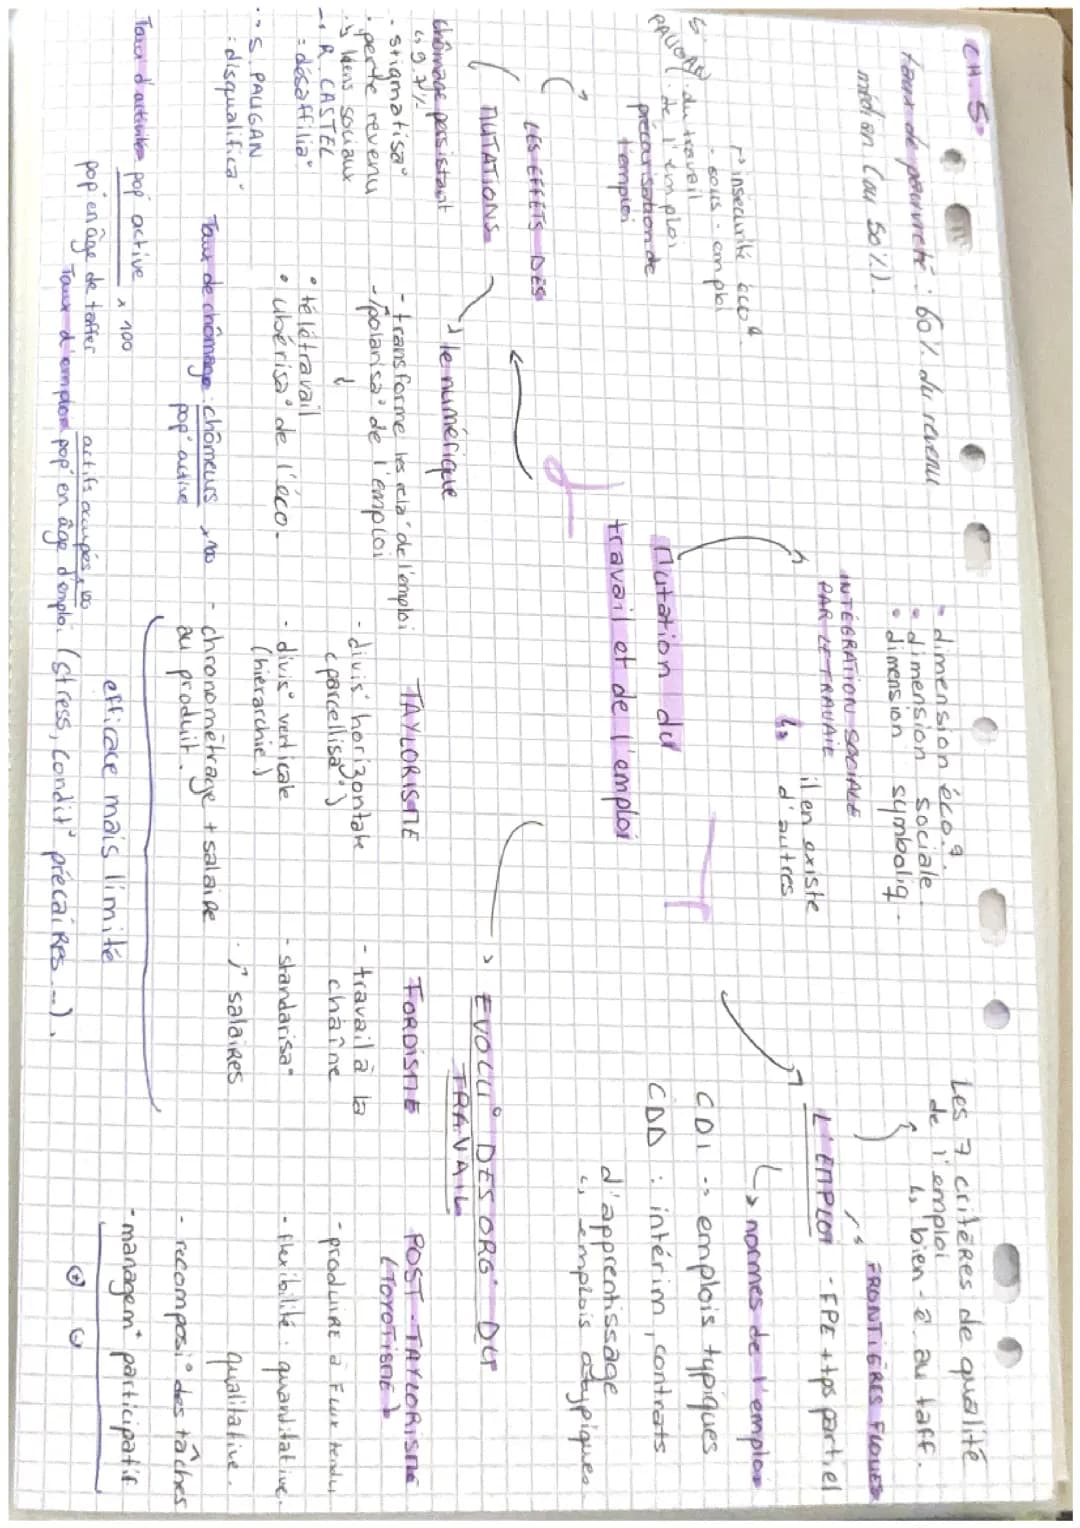 CH 5.
taux de pauvreté : 60 % du revenu
médian (au 50 %).
- dimension éco q.
• dimension sociale.
• dimension symboliq.
INTÉGRATION SOCIALE
PAR LE TRAVAIL
↳ il en existe
d'autres
Les 7 critères de qualité
de l'emploi
↳ bien-ê. au taff.
FRONTIÈRES FLOUES
L'EMPLOI - FPE + tps partiel
↳ normes de l'emploi
CDI → emplois typiques
CDD : intérim, contrats
d'apprentissage
↳ emplois atypiques.
Mutation du
travail et de l'emploi
insécurité éco q.
- sous-emploi
S.
. du travail
. de l'emploi
précarisation de
l'emploi
LES EFFETS DES
MUTATIONS
chômage persistant
↳ 9,7 %
- stigmatisa°
. perte revenu
. liens sociaux
→ R. CASTEL
: désaffilia°
→ S. PAUGAN
: disqualifica°
→ le numérique
- transforme les rela° de l'emploi
- polarisa° de l'emploi
↓
• télétravail
• ubérisa° de l'éco.
EVOLU° DES ORG° DU
TRAVAIL
TAYLORISME
- divis° horizontale
(parcellisa°)
- divis° verticale
(hiérarchie)
- chronométrage + salaire
au produit.
FORDISME
- travail à la
chaîne
- standarisa°
↑ salaires
efficace mais limité
(stress, condit° précaires...).
POST-TAYLORISME
(TOYOTISME)
- produire à Flux tendu
- flexibilité : quantitative,
qualitative.
- recomposi° des tâches
- managem° participatif
⊕
Taux de chômage : chômeurs × 100
pop° active
Taux d'activité pop° active × 100
pop° en âge de taffer
Taux d'emploi actifs occupés × 100
pop° en âge d'emploi